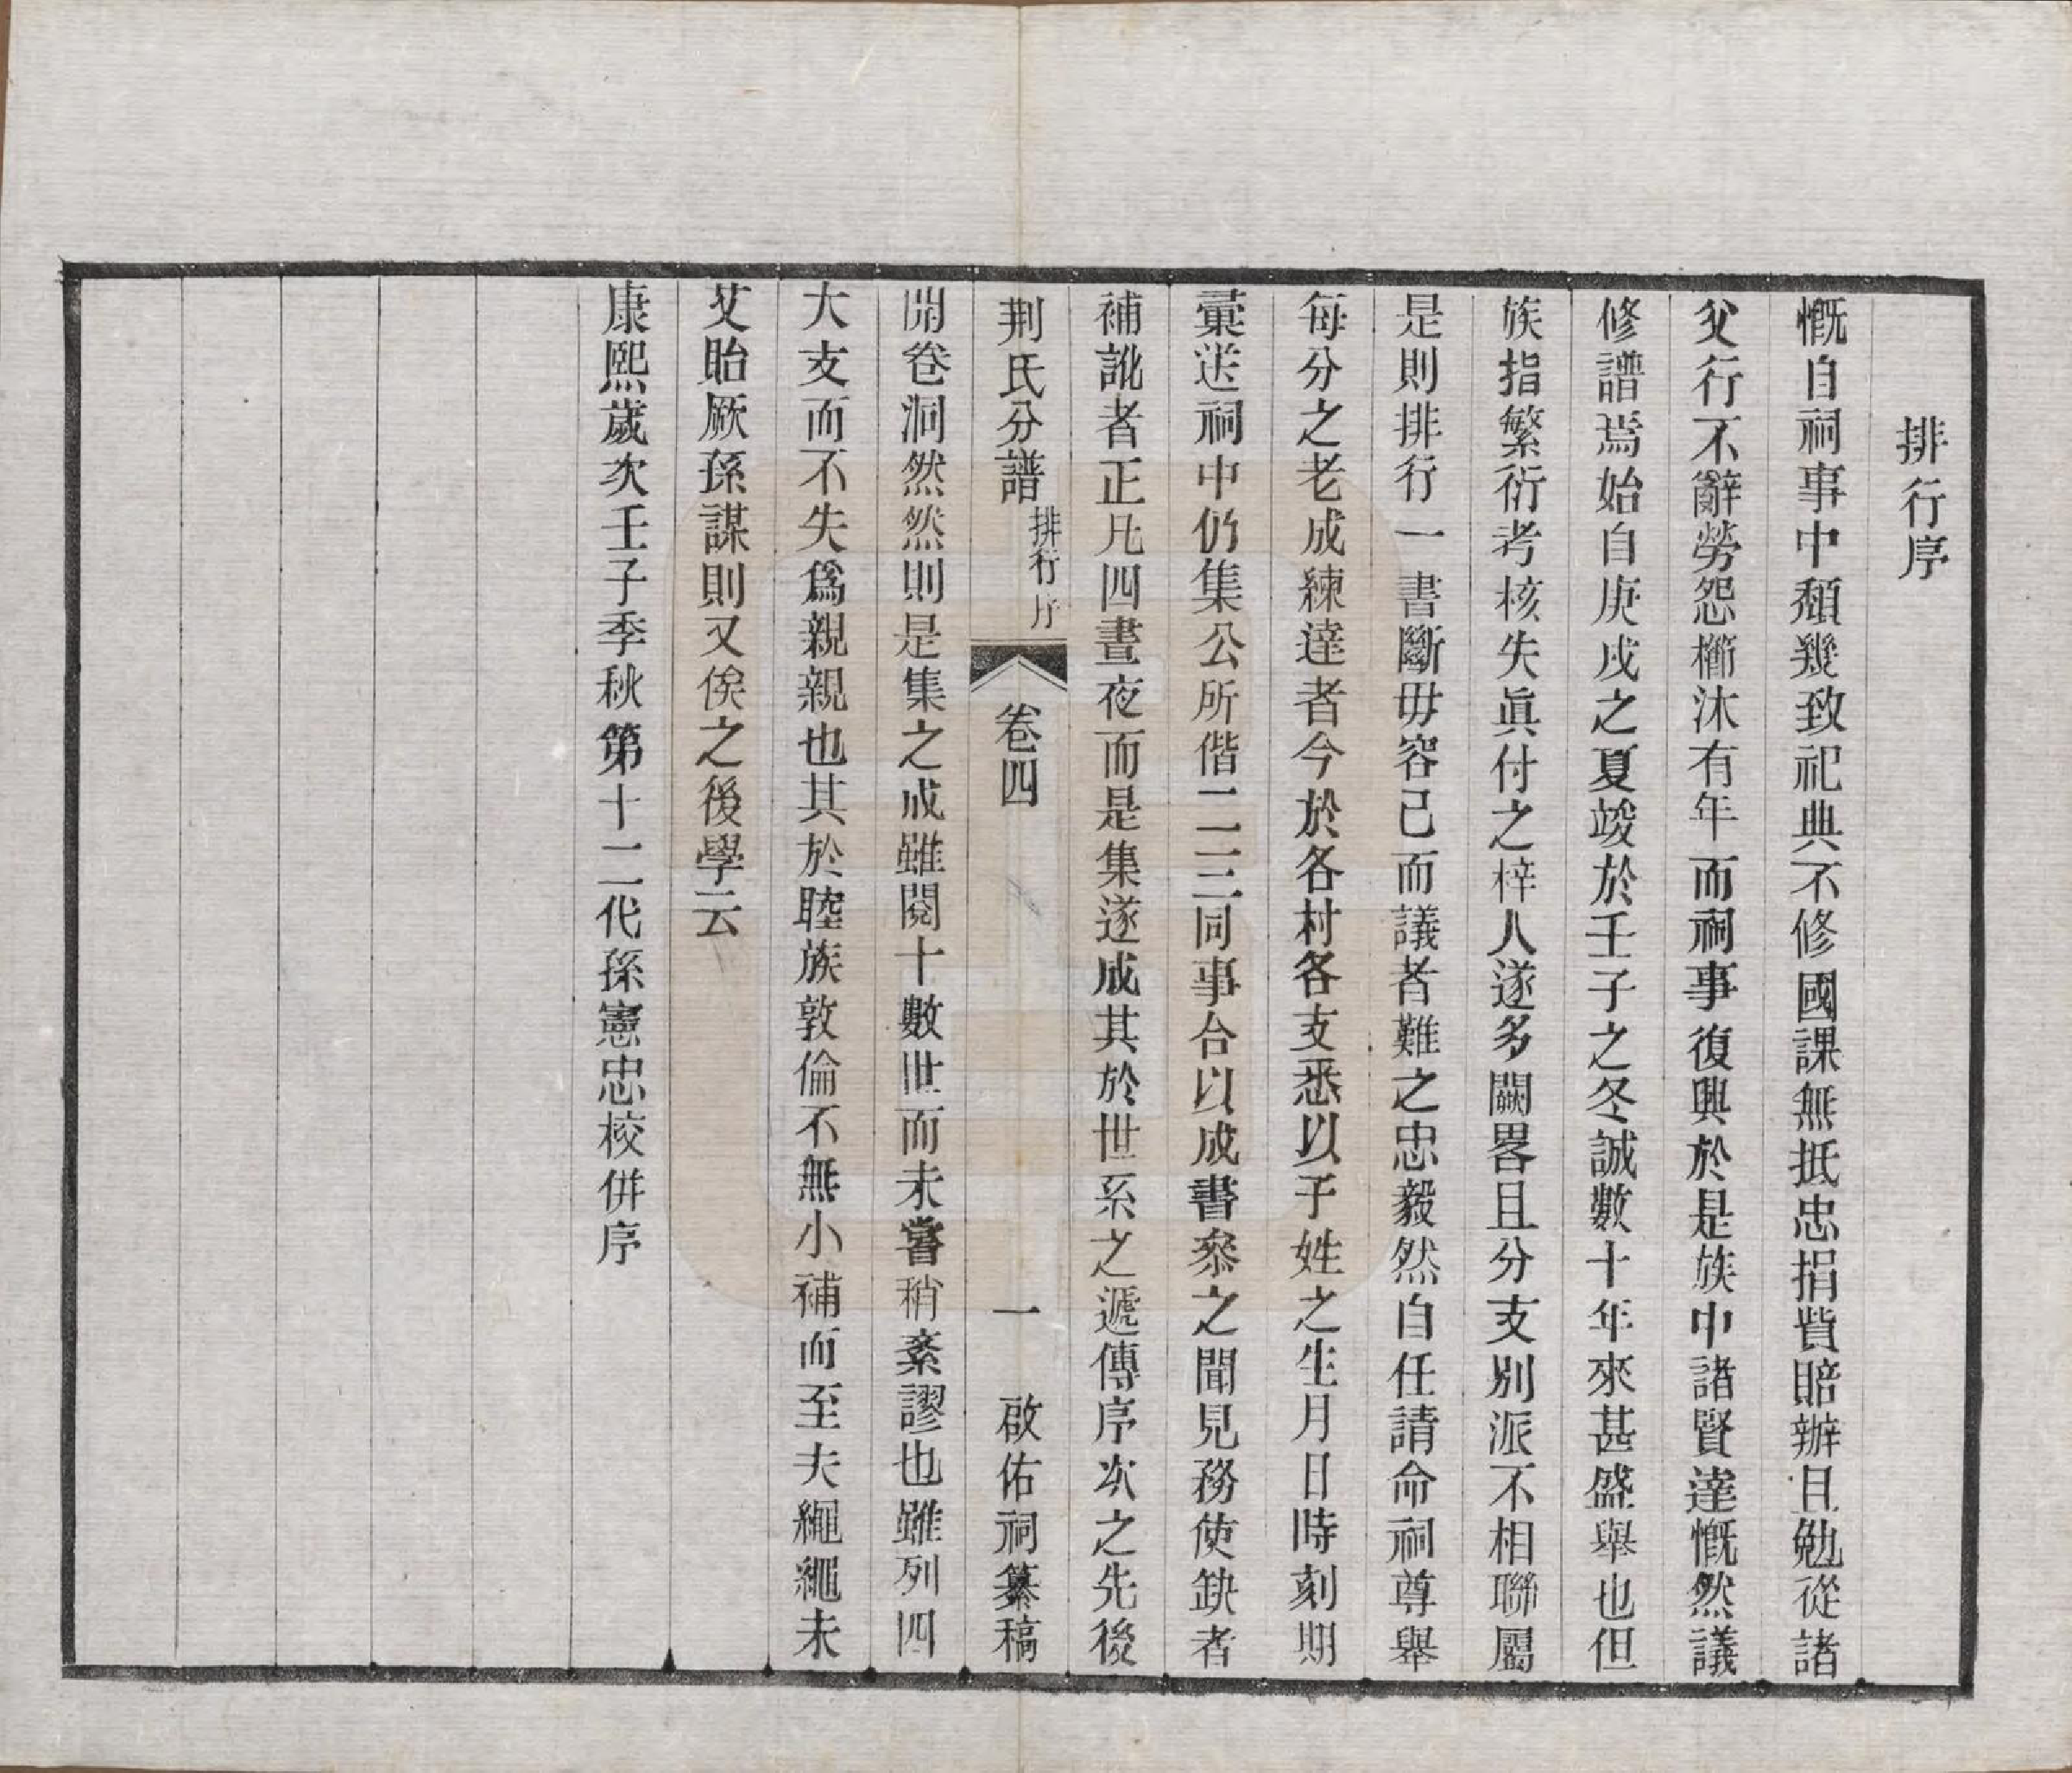 排行序
慨自祠事中頹幾致祀典不修國課無抵忠捐貲賠辦且勉從諸
父行不辭勞怨櫛沐有年而祠事復興於是族中諸賢達慨然議
修譜焉始自庚戌之夏竣於壬子之冬誠數十年來甚盛舉也但
族指繁衍考核失眞付之梓人遂多闕畧且分支別派不相聯屬
是則排行一書斷毋容已而議者難之忠毅然自任請命祠尊舉
每分之老成練達者今於各村各支悉以子姓之生月日時刻期
彙送祠中仍集公所偕二三同事合以成書叅之聞見務使缺者
補訛者正凡四晝夜而是集遂成其於世系之遞傳序次之先後
荆氏分譜 排行序 卷四 一 啟佑祠纂稿
開卷洞然然則是集之成雖閱十數世而未嘗稍紊謬也雖列四
大支而不失爲親親也其於睦族敦倫不無小補而至夫繩繩未
艾貽厥孫謀則又俟之後學云
康熙歲次壬子季秋第十二代孫憲忠校併序